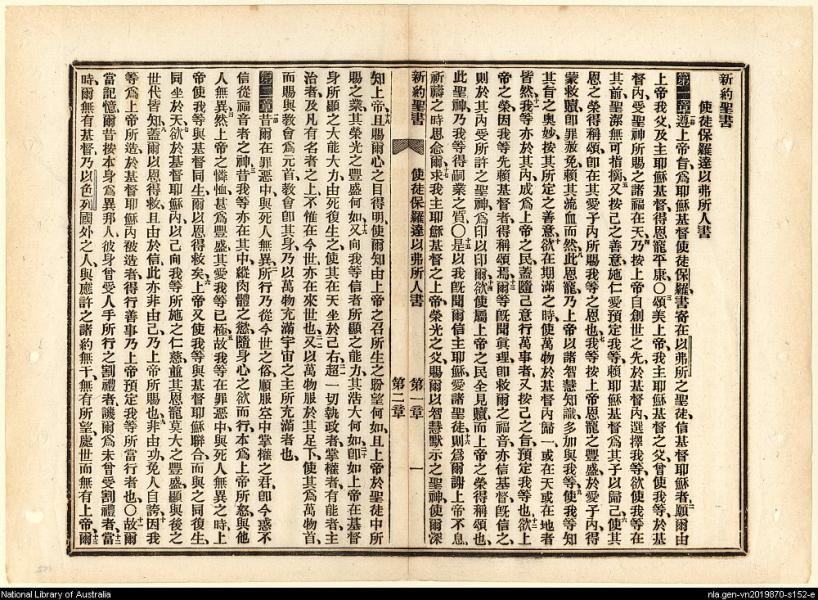 新約聖書
使徒保羅達以弗所人書
第一章遵上帝旨爲耶穌基督使徒保羅書寄在以弗所之聖徒信基督耶穌者、願爾由
上帝我父及主耶穌基督得恩寵平康、○頌美上帝我主耶穌基督之父、曾使我等於基
督內受聖神所賜之諸福在天、乃按上帝自創世之先於基督內選擇我等、欲使我等在
其前聖潔無可指摘、又按己之善意施仁愛預定我等、賴耶穌基督爲其子以歸己、使其
恩之榮得稱頌、卽在其愛子內所賜我等之恩也、我等按上帝恩寵之豐盛於愛子內得
蒙救贖、卽罪赦免、賴其流血而然、此恩寵乃上帝以諸智慧知識多加與我等、使我等知
其旨之奧妙、按其所定之善意、欲在期滿之時、使萬物於基督內歸一、或在天或在地者
皆然、我等亦於其內成爲上帝之民、蓋隨己意行萬事者又按己之旨預定我等也、欲上
帝之榮因我等先賴基督者得稱揚焉、爾等旣聞眞理、卽救爾之福音、亦信基督、旣信之、
則於其內受所許之聖神爲印以印爾、欲使屬上帝之民全見贖、而上帝之榮得稱頌也、
此聖神乃我等得嗣業之質、○是以我旣聞爾信主耶穌愛諸聖徒、則爲爾謝上帝不息、
祈禱之時恩念爾、求我主耶穌基督之上帝榮光之父、賜爾以智慧默示之聖神、使爾深
新約聖書 使徒保羅達以弗所人書 第一章 一
第二章
知上帝、且賜爾心之目得明、使爾知由上帝之召所生之盼望何如、且上帝於聖徒中所
賜之業、其榮光之豐盛何如、又向我等信者所顯之能力、其浩大何如、卽如上帝在基督
身所顯之大能大力、由死復生之、使其在天坐於己右、超一切執政者、掌權者、有能者、主
治者、及凡有名者之上、不惟在今世、亦在來世也、又以萬物服於其足下、使其爲萬物首
而賜與教會爲元首、教會卽其身、乃以萬物充滿宇宙之主所充滿者也、
第二章昔爾在罪惡中與死人無異、所行乃從今世之俗、順服空中掌權之君、卽今惑不
信從福音者之神、昔我等亦在其中、縱肉體之慾、隨身心之欲而行、本爲上帝所怒、與他
人無異、然上帝之憐恤甚爲豐盛、其愛我等已極、故我等在罪惡中與死人無異之時、上
帝使我等與基督同生、爾以恩得救矣、上帝又使我等與基督耶穌聯合而與之同復生、
同坐於天、欲於基督耶穌內以己向我等所施之仁慈、並其恩寵莫大之豐盛、顯與後之
世代皆知、蓋爾以恩得救、且由於信、此亦非由己、乃上帝所賜也、非由功免人自誇、因我
等爲上帝所造、於基督耶穌內被造者、得行善事、乃上帝預定我等所當行者也、○故爾
當記憶爾昔按本身爲異邦人、彼身曾受人手所行之割禮者、譏爾爲未曾受割禮者、當
時爾無有基督、乃以色列國外之人、與應許之諸約無干、無有所望、處世而無有上帝、爾
National Library of Australia
nla.gen-vn2019870-s152-e